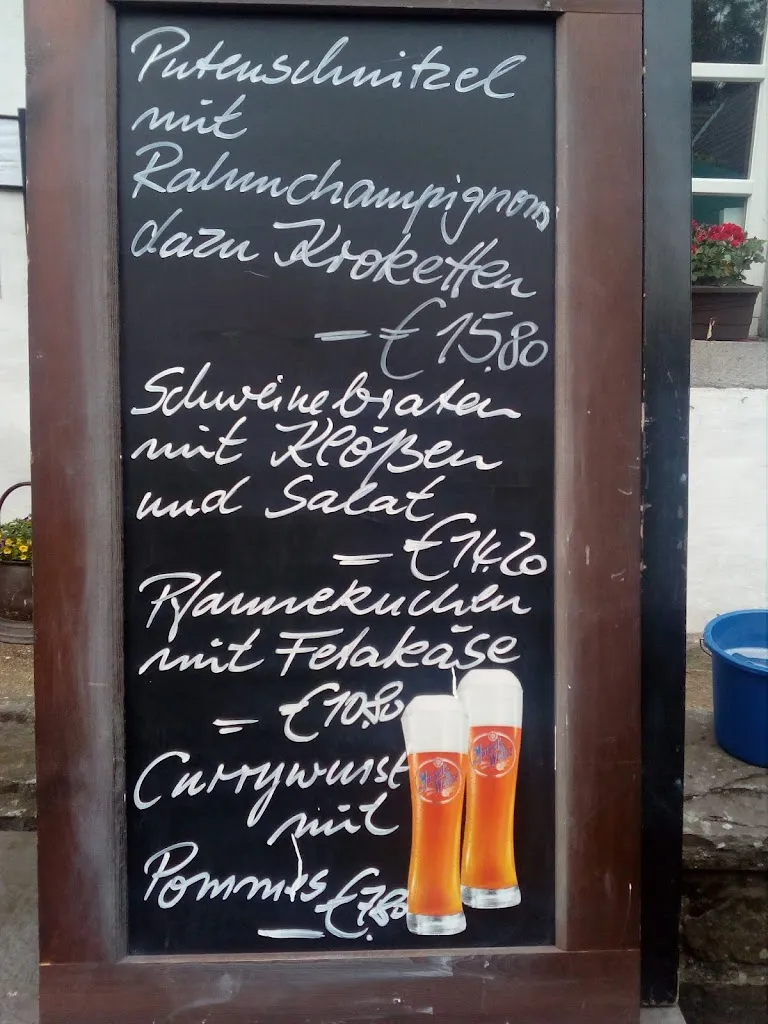 Putenschnitzel
mit
Rahmchampignons
dazu Kroketten
= € 15.80
Schweinebraten
mit Klößen
und Salat
= € 14.20
Pfannekuchen
mit Fetakäse
= € 10.80
Currywurst
mit
Pommes € 7.80